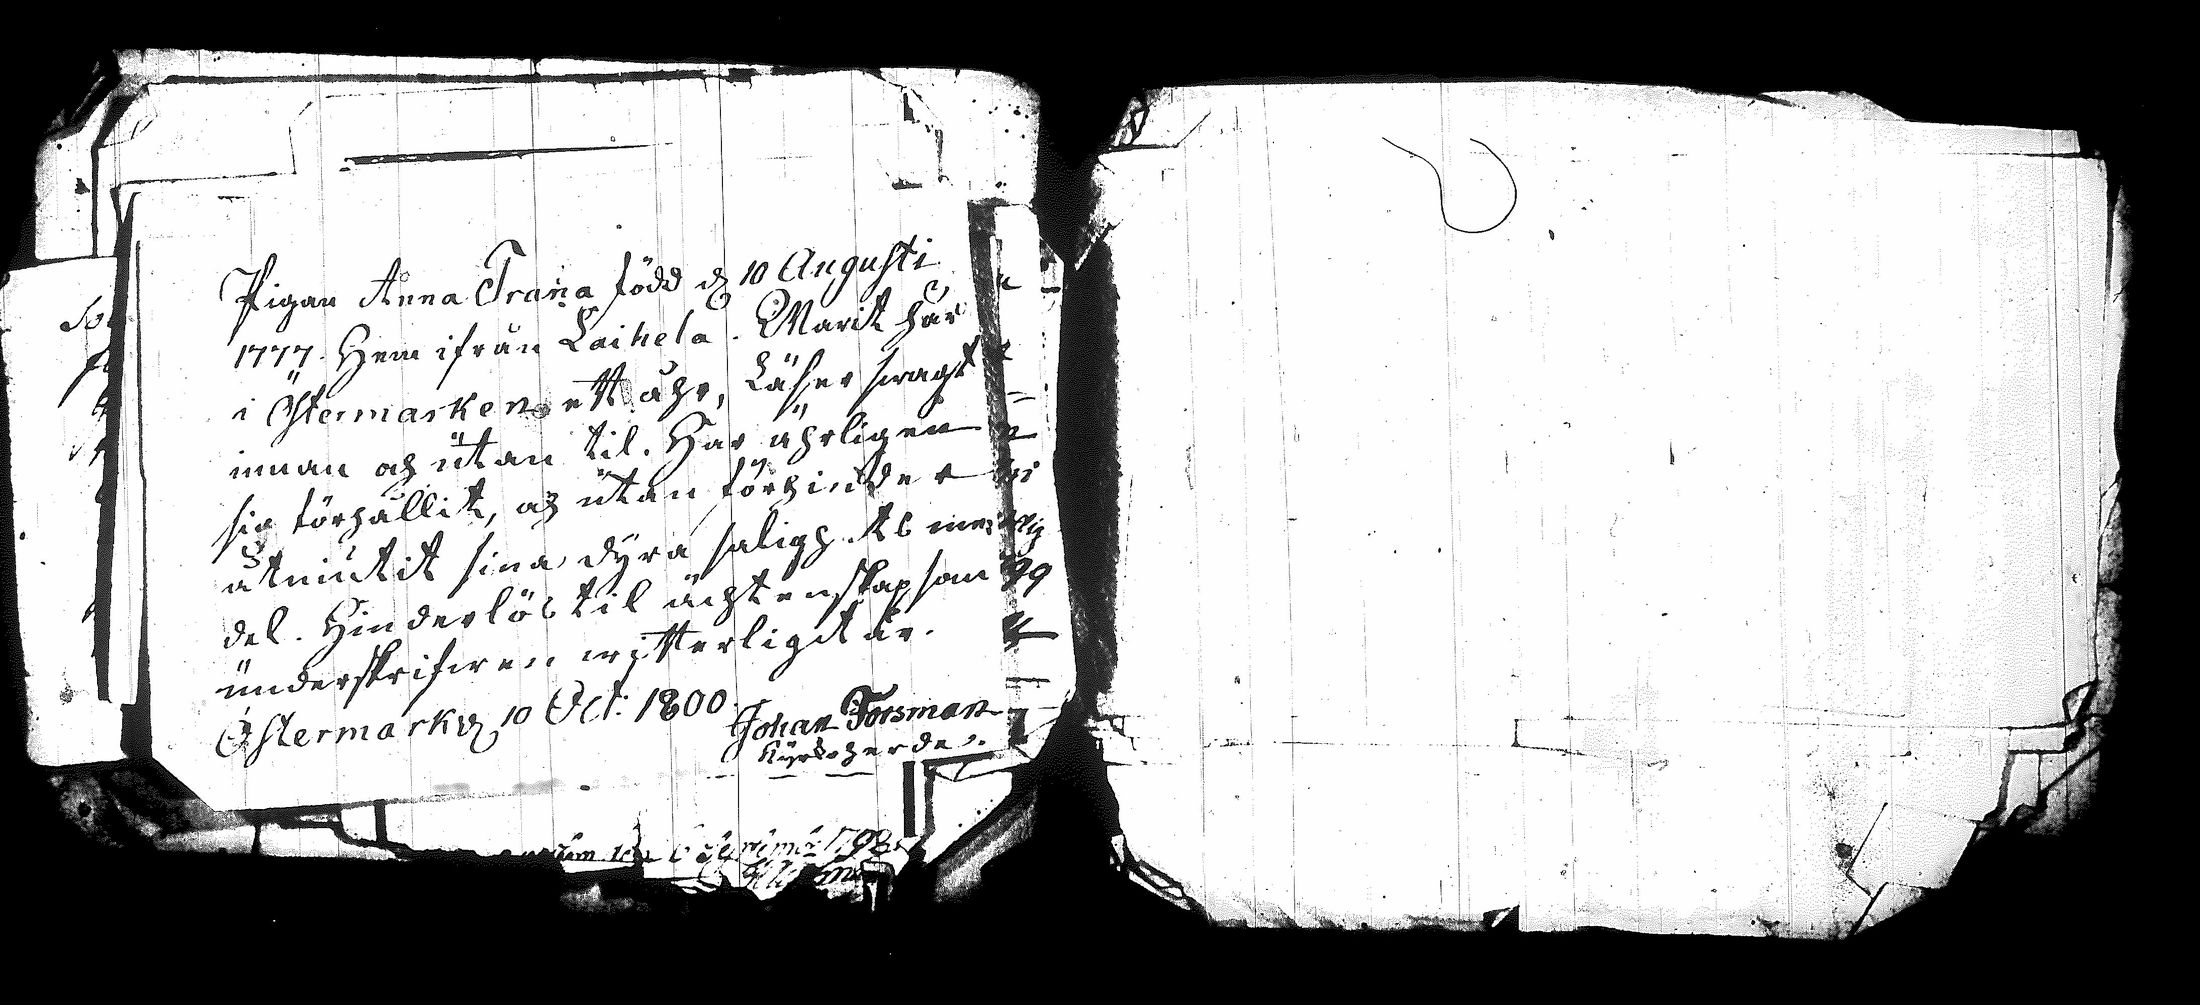 Pigan Anna Frana född d. 10 Augusti
1777. Hem ifrån Laihela. Warit här
i Östermarken ett åhr, Läser swagt
innan och utan til. Har ährligen
sig förhållit, och utan förhinder
åtniutit sina dyra saligh.ts me
del. Hinderlös til ächtenskap som
underskrifwen witterligit är.
Östermark d. 10 Oct: 1800.
Johan Forsman
Kyrkoherde.
1798